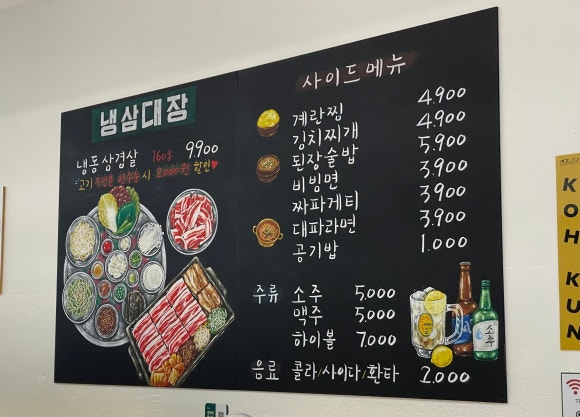 냉삼대장
냉동삼겹살 160g 9.900
고기 첫주문 시 2000원 할인♥
사이드메뉴
계란찜 4.900
김치찌개 4.900
된장술밥 5.900
비빔면 3.900
짜파게티 3.900
대파라면 3.900
공기밥 1.000
주류 소주 5.000
맥주 5.000
하이볼 7.000
음료 콜라/사이다/환타 2.000
소주
KOH KUN